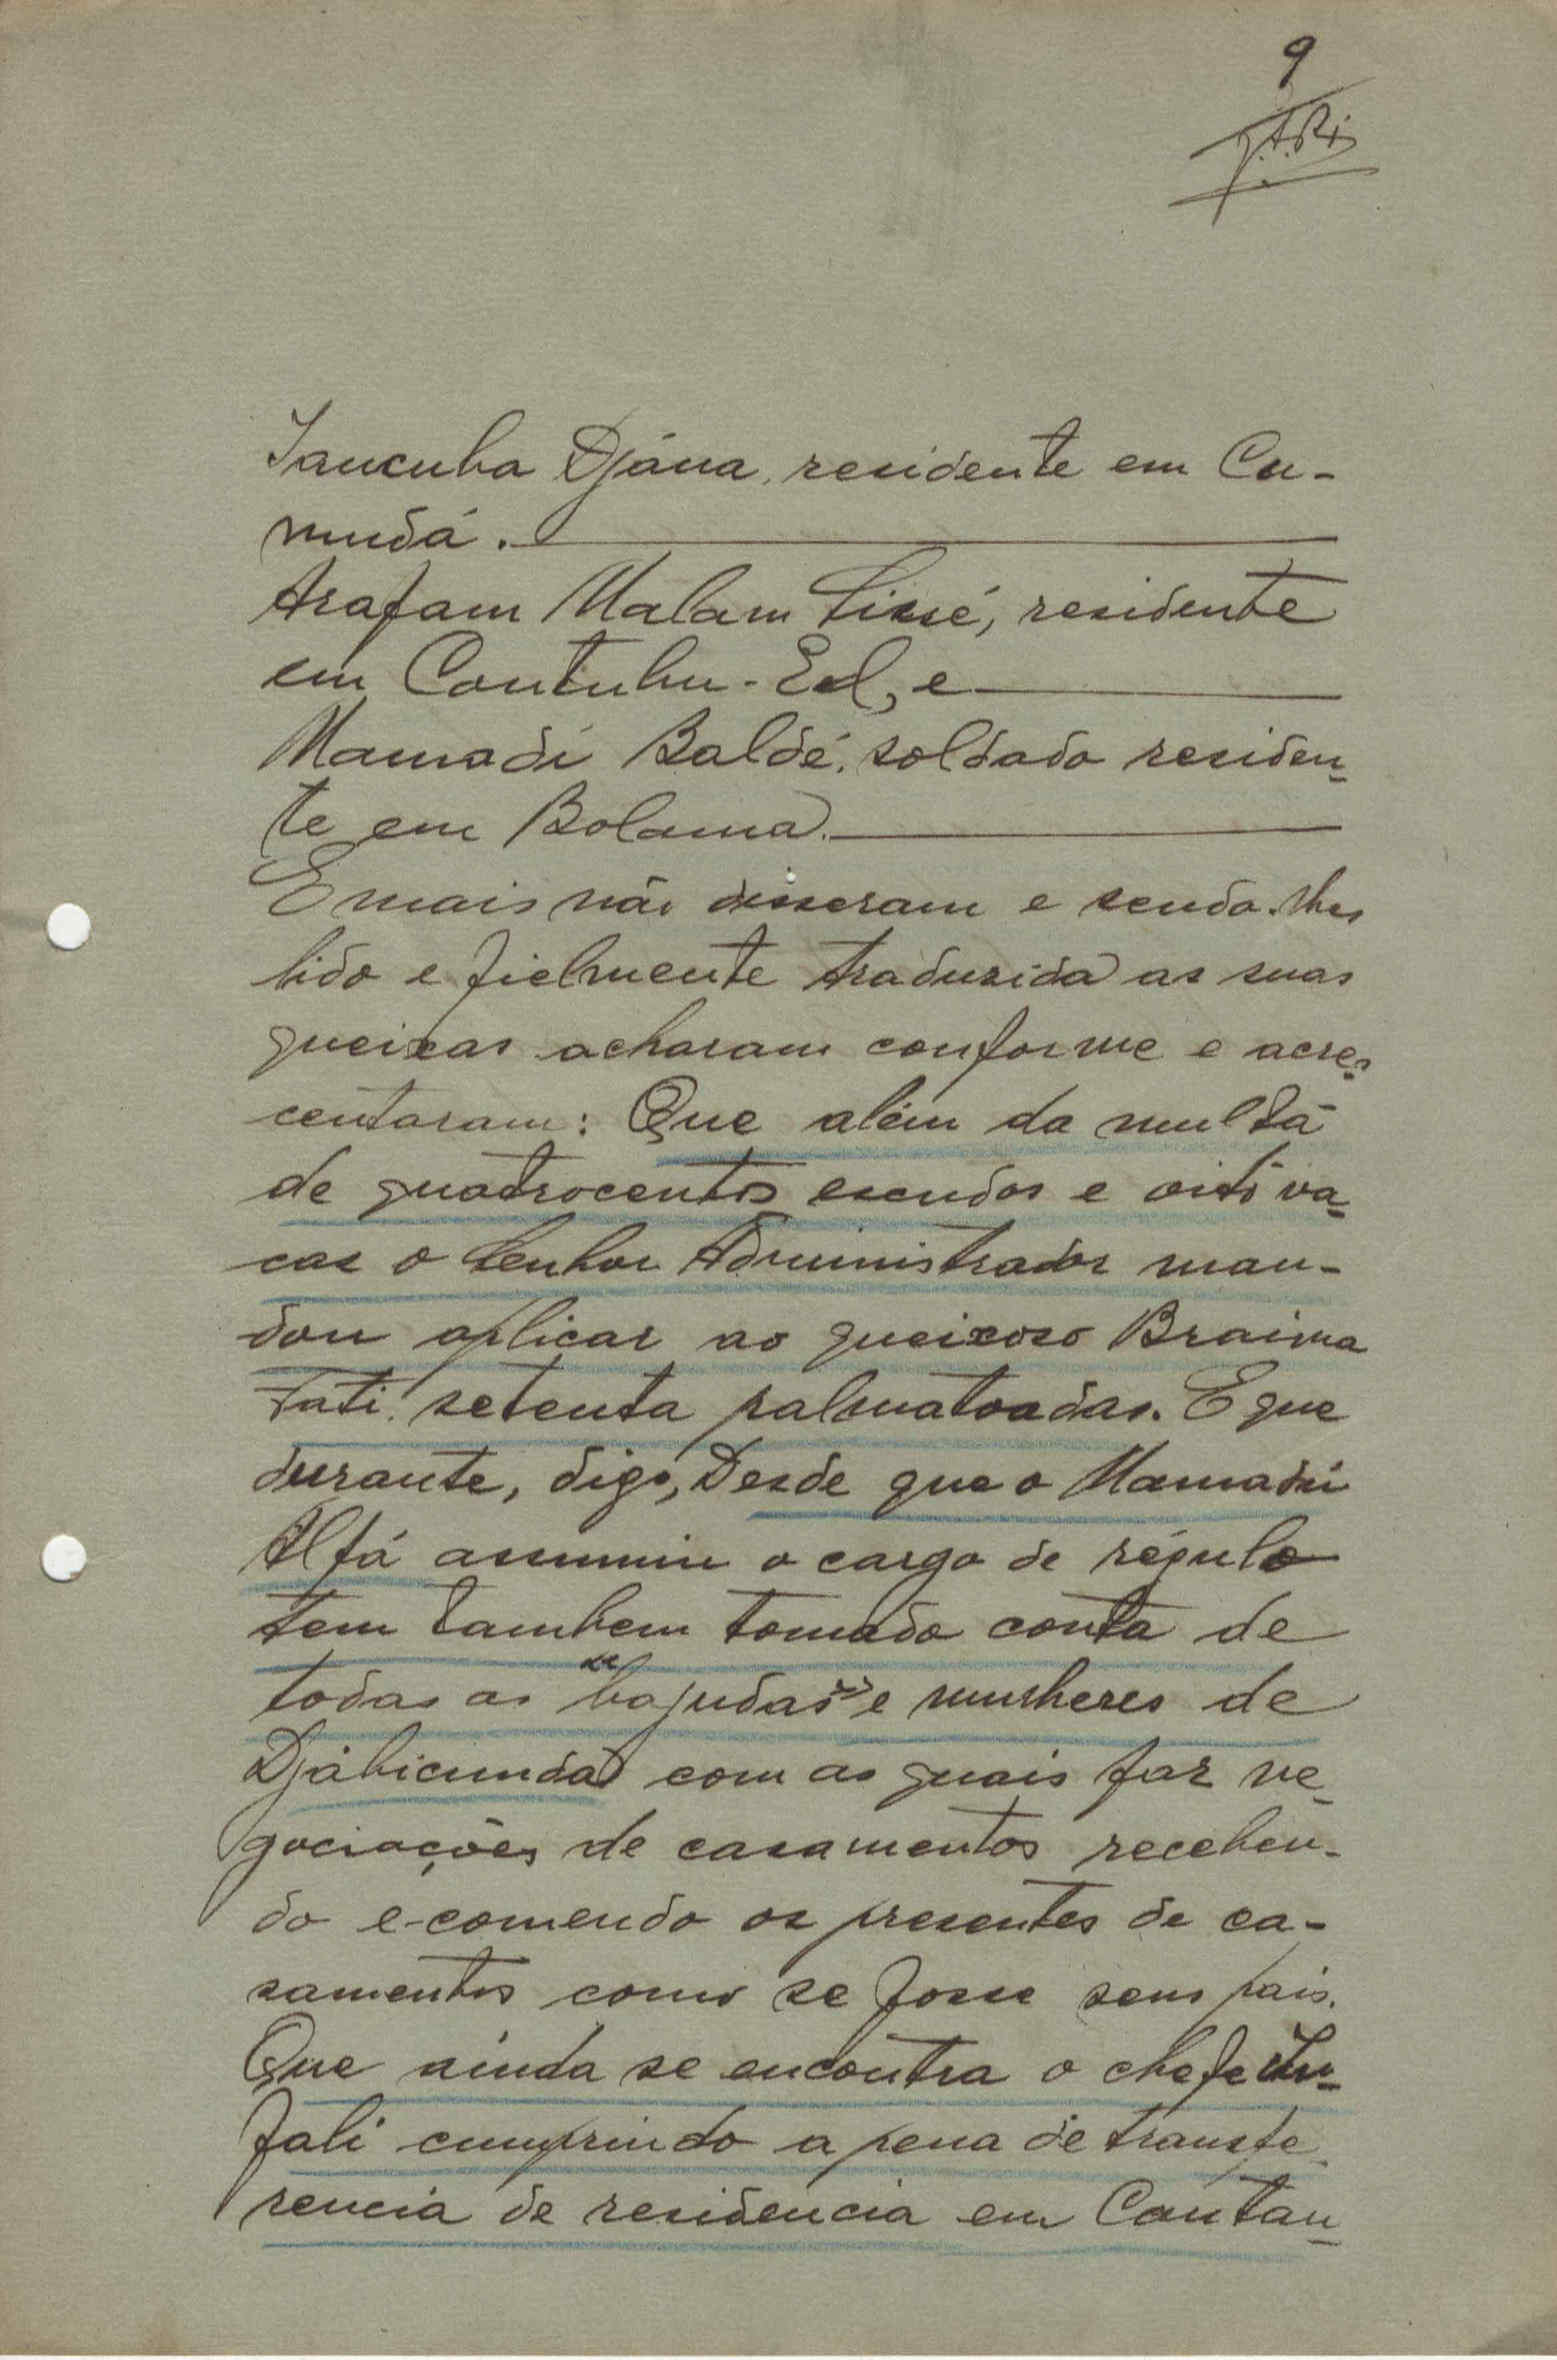 9
Iancuba Djána, residente em Cu-
mudá.
Arafam Malam Sissé, residente
em Contubu-El, e
Mamadi Baldé, soldado residen-
te em Bolama.
E mais não disseram e sendo-lhes
lido e fielmente traduzida as suas
queixas acharam conforme e acres-
centaram: Que além da multa
de quatrocentos escudos e oito va-
cas o Senhor Administrador man-
dou aplicar ao queixoso Braima
Fati, setenta palmatoadas. E que
durante, digo, Desde que o Mamadú
Alfá assumiu o cargo de régulo
tem tambem tomado conta de
todas as "bajudas" e mulheres de
Djabicunda com as quais faz ne-
gociações de casamentos receben-
do e comendo os presentes de ca-
samentos como se fosse seus pais.
Que ainda se encontra o chefe
fali cumprindo a pena de transfe-
rencia de residencia em Cantan-